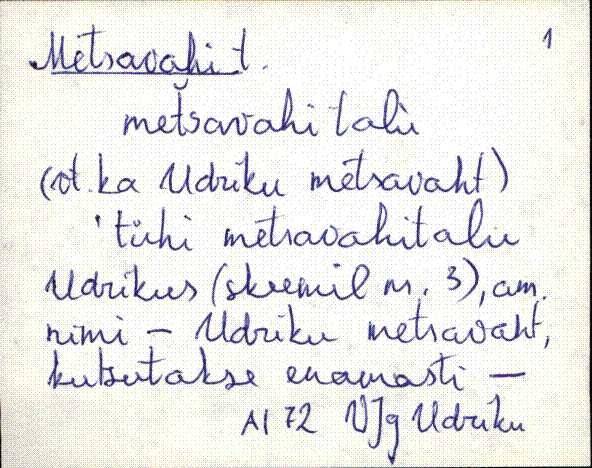 Metsavahi t. 1
metsavahi talu
(vt. ka Udriku metsavaht)
'tühi metsavahitalu
Udrikus (skeemil nr. 3), am.
nimi – Udriku metsavaht,
kutsutakse enamasti –
AI 72 VJg Udriku